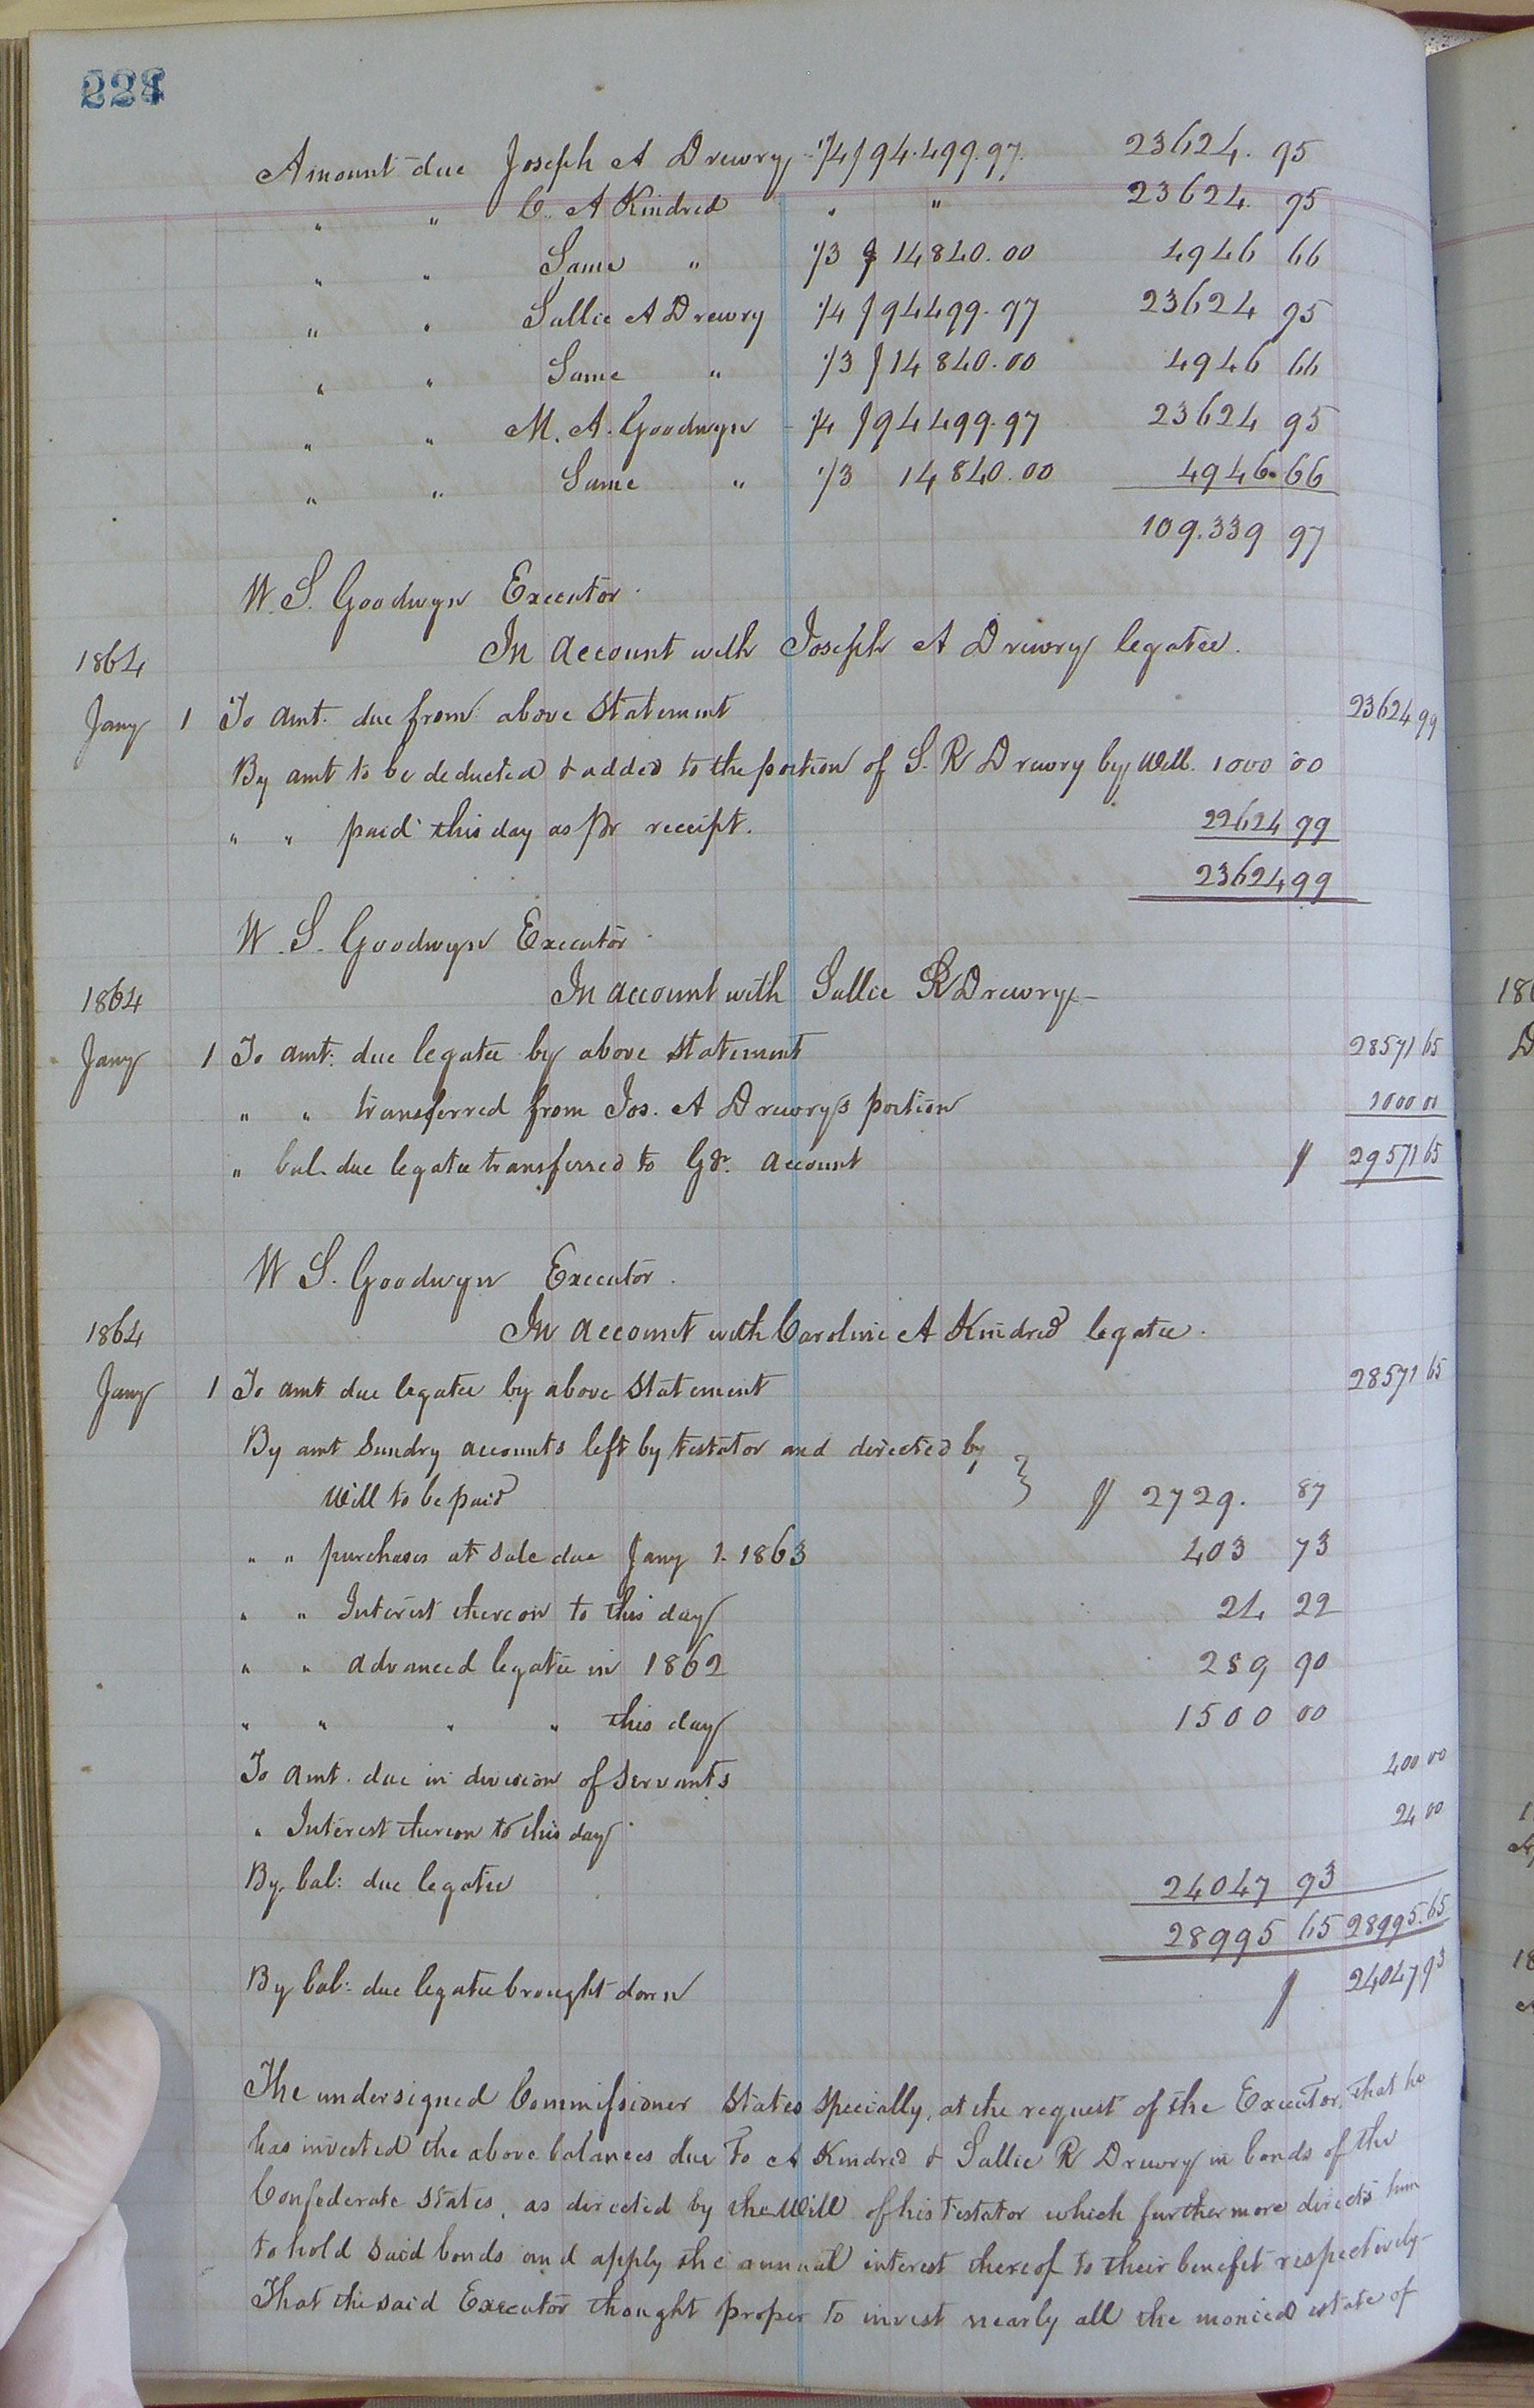 228
Amount due Joseph A Drewry 1/4 $94.499.97. 23624. 95
" " C. A Kindred " " 23624. 95
" " Same " 1/3 $ 14840.00 4946 66
" " Sallie A Drewry 1/4 $94499.97 23624 95
" " Same " 1/3 $14840.00 4946 66
" " M. A. Goodwyn - 1/4 $94499.97 23624 95
" " Same " 1/3 14840.00 4946.66
109.339 97
W. S. Goodwyn Executor.
1864 In account with Joseph A Drewry legatee.
Jany 1 To amt. due from above statement 23624 99
By amt to be deducted & added to the portion of S. R Drewry by Will. 1000 00
" " paid this day as pr receipt. 22624 99
23624 99
W. S. Goodwyn Executor
1864 In account with Sallie R Drewry-
Jany 1 To amt: due legatee by above statement 28571 65
" " transferred from Jos. A Drewry's portion 1000 00
" bal. due legatee transferred to Gdn. account $ 29571 65
W S. Goodwyn Executor.
1864 In account with Caroline A Kindred legatee.
Jany 1 To amt due legatee by above statement 28571 65
By amt sundry accounts left by testator and directed by }
Will to be paid $ 2729. 87
" " purchases at sale due Jany 1. 1863 403 73
" " Interest thereon to this day 24 22
" " advanced legatee in 1862 289 90
" " " " this day 1500 00
To amt. due in division of servants 400 00
" Interest thereon to this day 24 00
By. bal: due legatee 24047 93
28995 65 28995.65
By bal: due legatee brought down $ 24047 93
The undersigned Commissioner states specially, at the request of the Executor, that he
has invested the above balances due to A Kindred & Sallie R Drewry in bonds of the
Confederate States, as directed by the Will of his testator which furthermore directs him
to hold said bonds and apply the annual interest thereof to their benefit respectively-
That the said Executor thought proper to invest nearly all the monied estate of